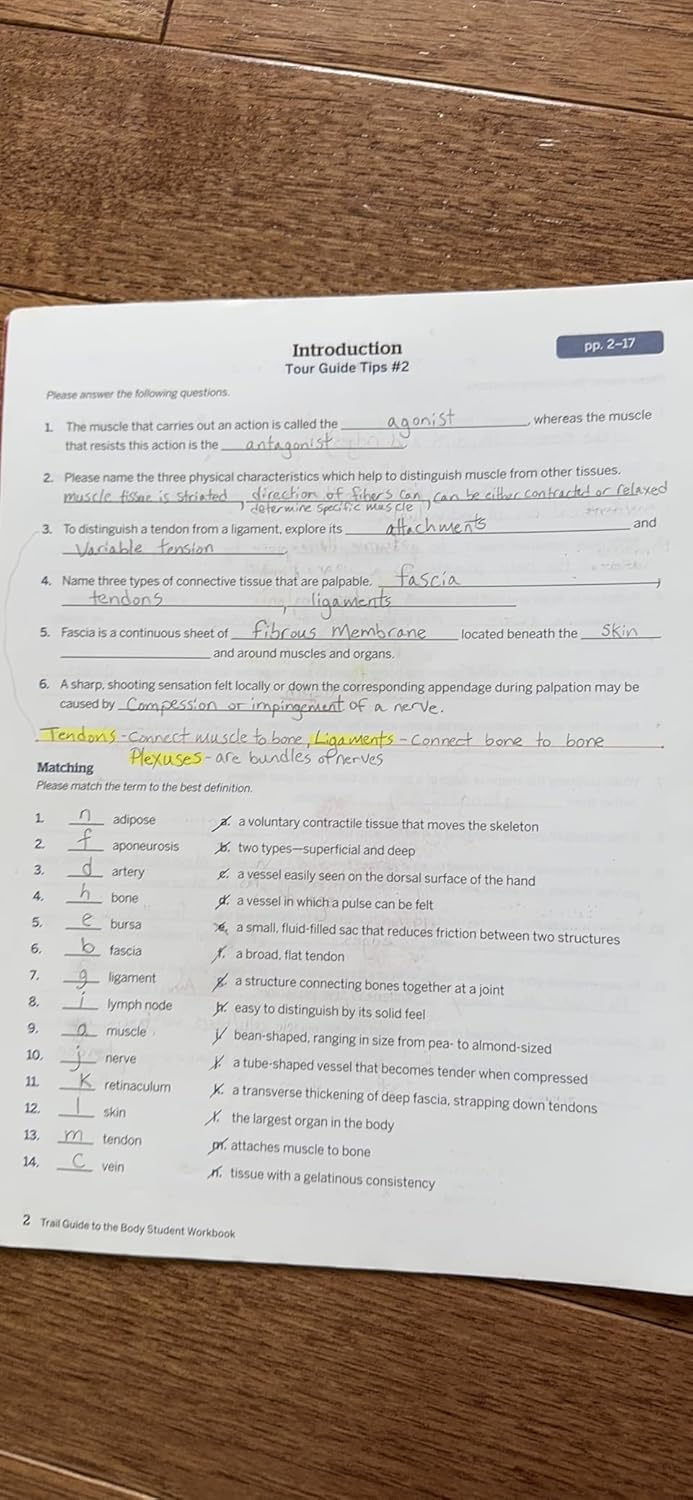 Introduction
pp. 2–17
Tour Guide Tips #2
Please answer the following questions.
1. The muscle that carries out an action is called the agonist, whereas the muscle
that resists this action is the antagonist.
2. Please name the three physical characteristics which help to distinguish muscle from other tissues.
muscle tissue is striated, direction of fibers can, can be either contracted or relaxed
determine specific muscle
3. To distinguish a tendon from a ligament, explore its attachments and
Variable tension
4. Name three types of connective tissue that are palpable. fascia,
tendons, ligaments
5. Fascia is a continuous sheet of fibrous Membrane located beneath the skin
and around muscles and organs.
6. A sharp, shooting sensation felt locally or down the corresponding appendage during palpation may be
caused by Compession or impingement of a nerve.
Tendons - Connect muscle to bone, Ligaments - Connect bone to bone.
Plexuses - are bundles of nerves
Matching
Please match the term to the best definition.
1. n adipose a. a voluntary contractile tissue that moves the skeleton
2. f aponeurosis b. two types—superficial and deep
3. d artery c. a vessel easily seen on the dorsal surface of the hand
4. h bone d. a vessel in which a pulse can be felt
5. e bursa e. a small, fluid-filled sac that reduces friction between two structures
6. b fascia f. a broad, flat tendon
7. g ligament g. a structure connecting bones together at a joint
8. i lymph node h. easy to distinguish by its solid feel
9. a muscle i. bean-shaped, ranging in size from pea- to almond-sized
10. j nerve j. a tube-shaped vessel that becomes tender when compressed
11. K retinaculum k. a transverse thickening of deep fascia, strapping down tendons
12. l skin l. the largest organ in the body
13. m tendon m. attaches muscle to bone
14. C vein n. tissue with a gelatinous consistency
2 Trail Guide to the Body Student Workbook